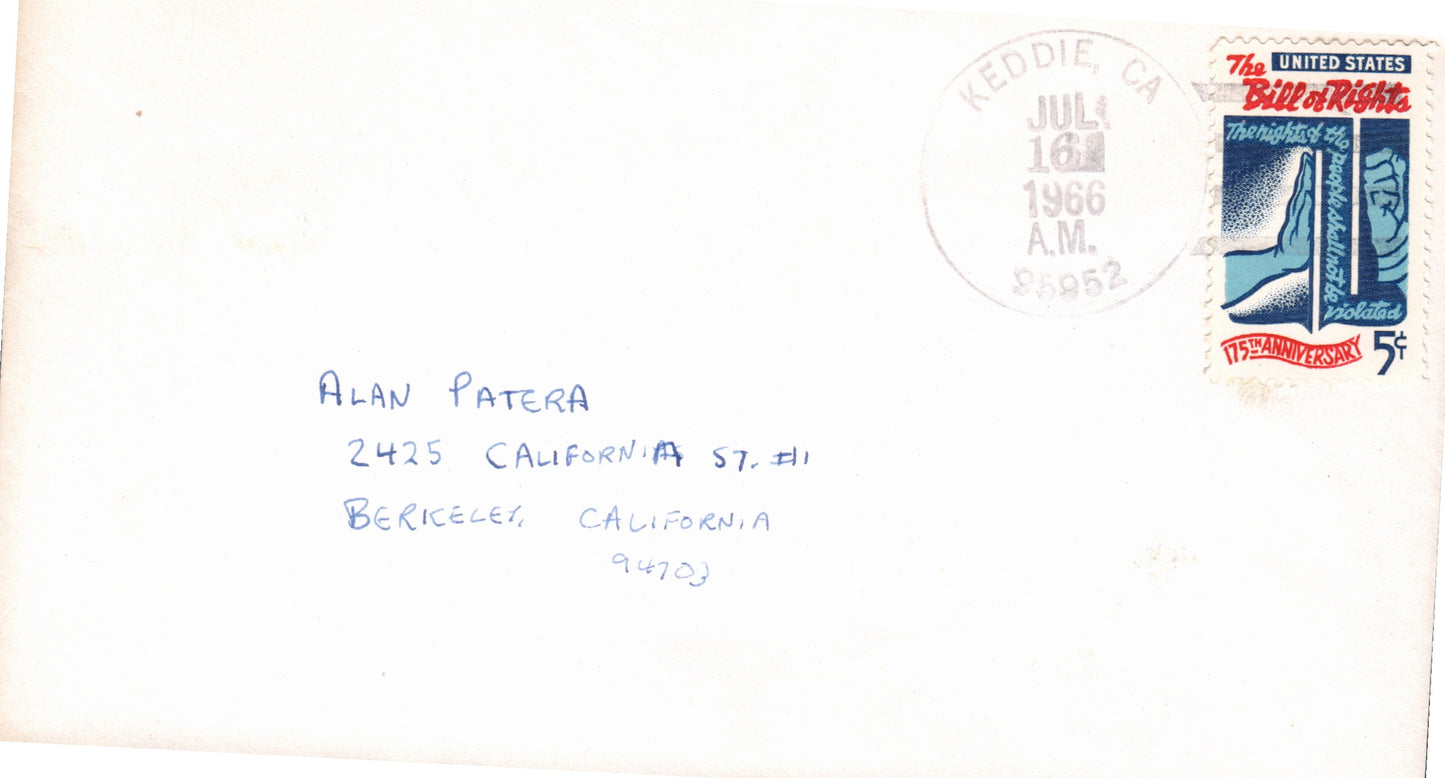 KEDDIE, CA
JUL
16
1966
A.M.
95952
UNITED STATES
The
Bill of Rights
The rights of the
people shall not be
violated
175TH ANNIVERSARY
5¢
ALAN PATERA
2425 CALIFORNIA ST. #1
BERKELEY, CALIFORNIA
94703